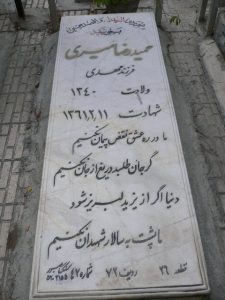 حمیدرضا میری
فرزند مهدی
ولادت ۱۳۴۰
شهادت ۱۳۶۱،۲،۱۱
ما در ره عشق نقض پیمان نکنیم
گر جان طلبد دریغ از جان نکنیم
دنیا اگر از یزید لبریز شود
ما پشت به سالار شهیدان نکنیم
قطعه ۲۶ ردیف ۷۶ شماره ۴۷